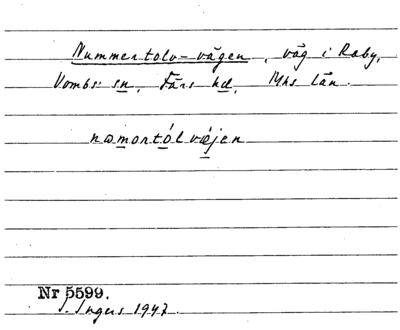 Nummertolv-vägen, väg i Raby,
Vombs sn, Färs hd, Mhs län.
namərtólvæjen
Nr 5599.
I. Ingers 1947.